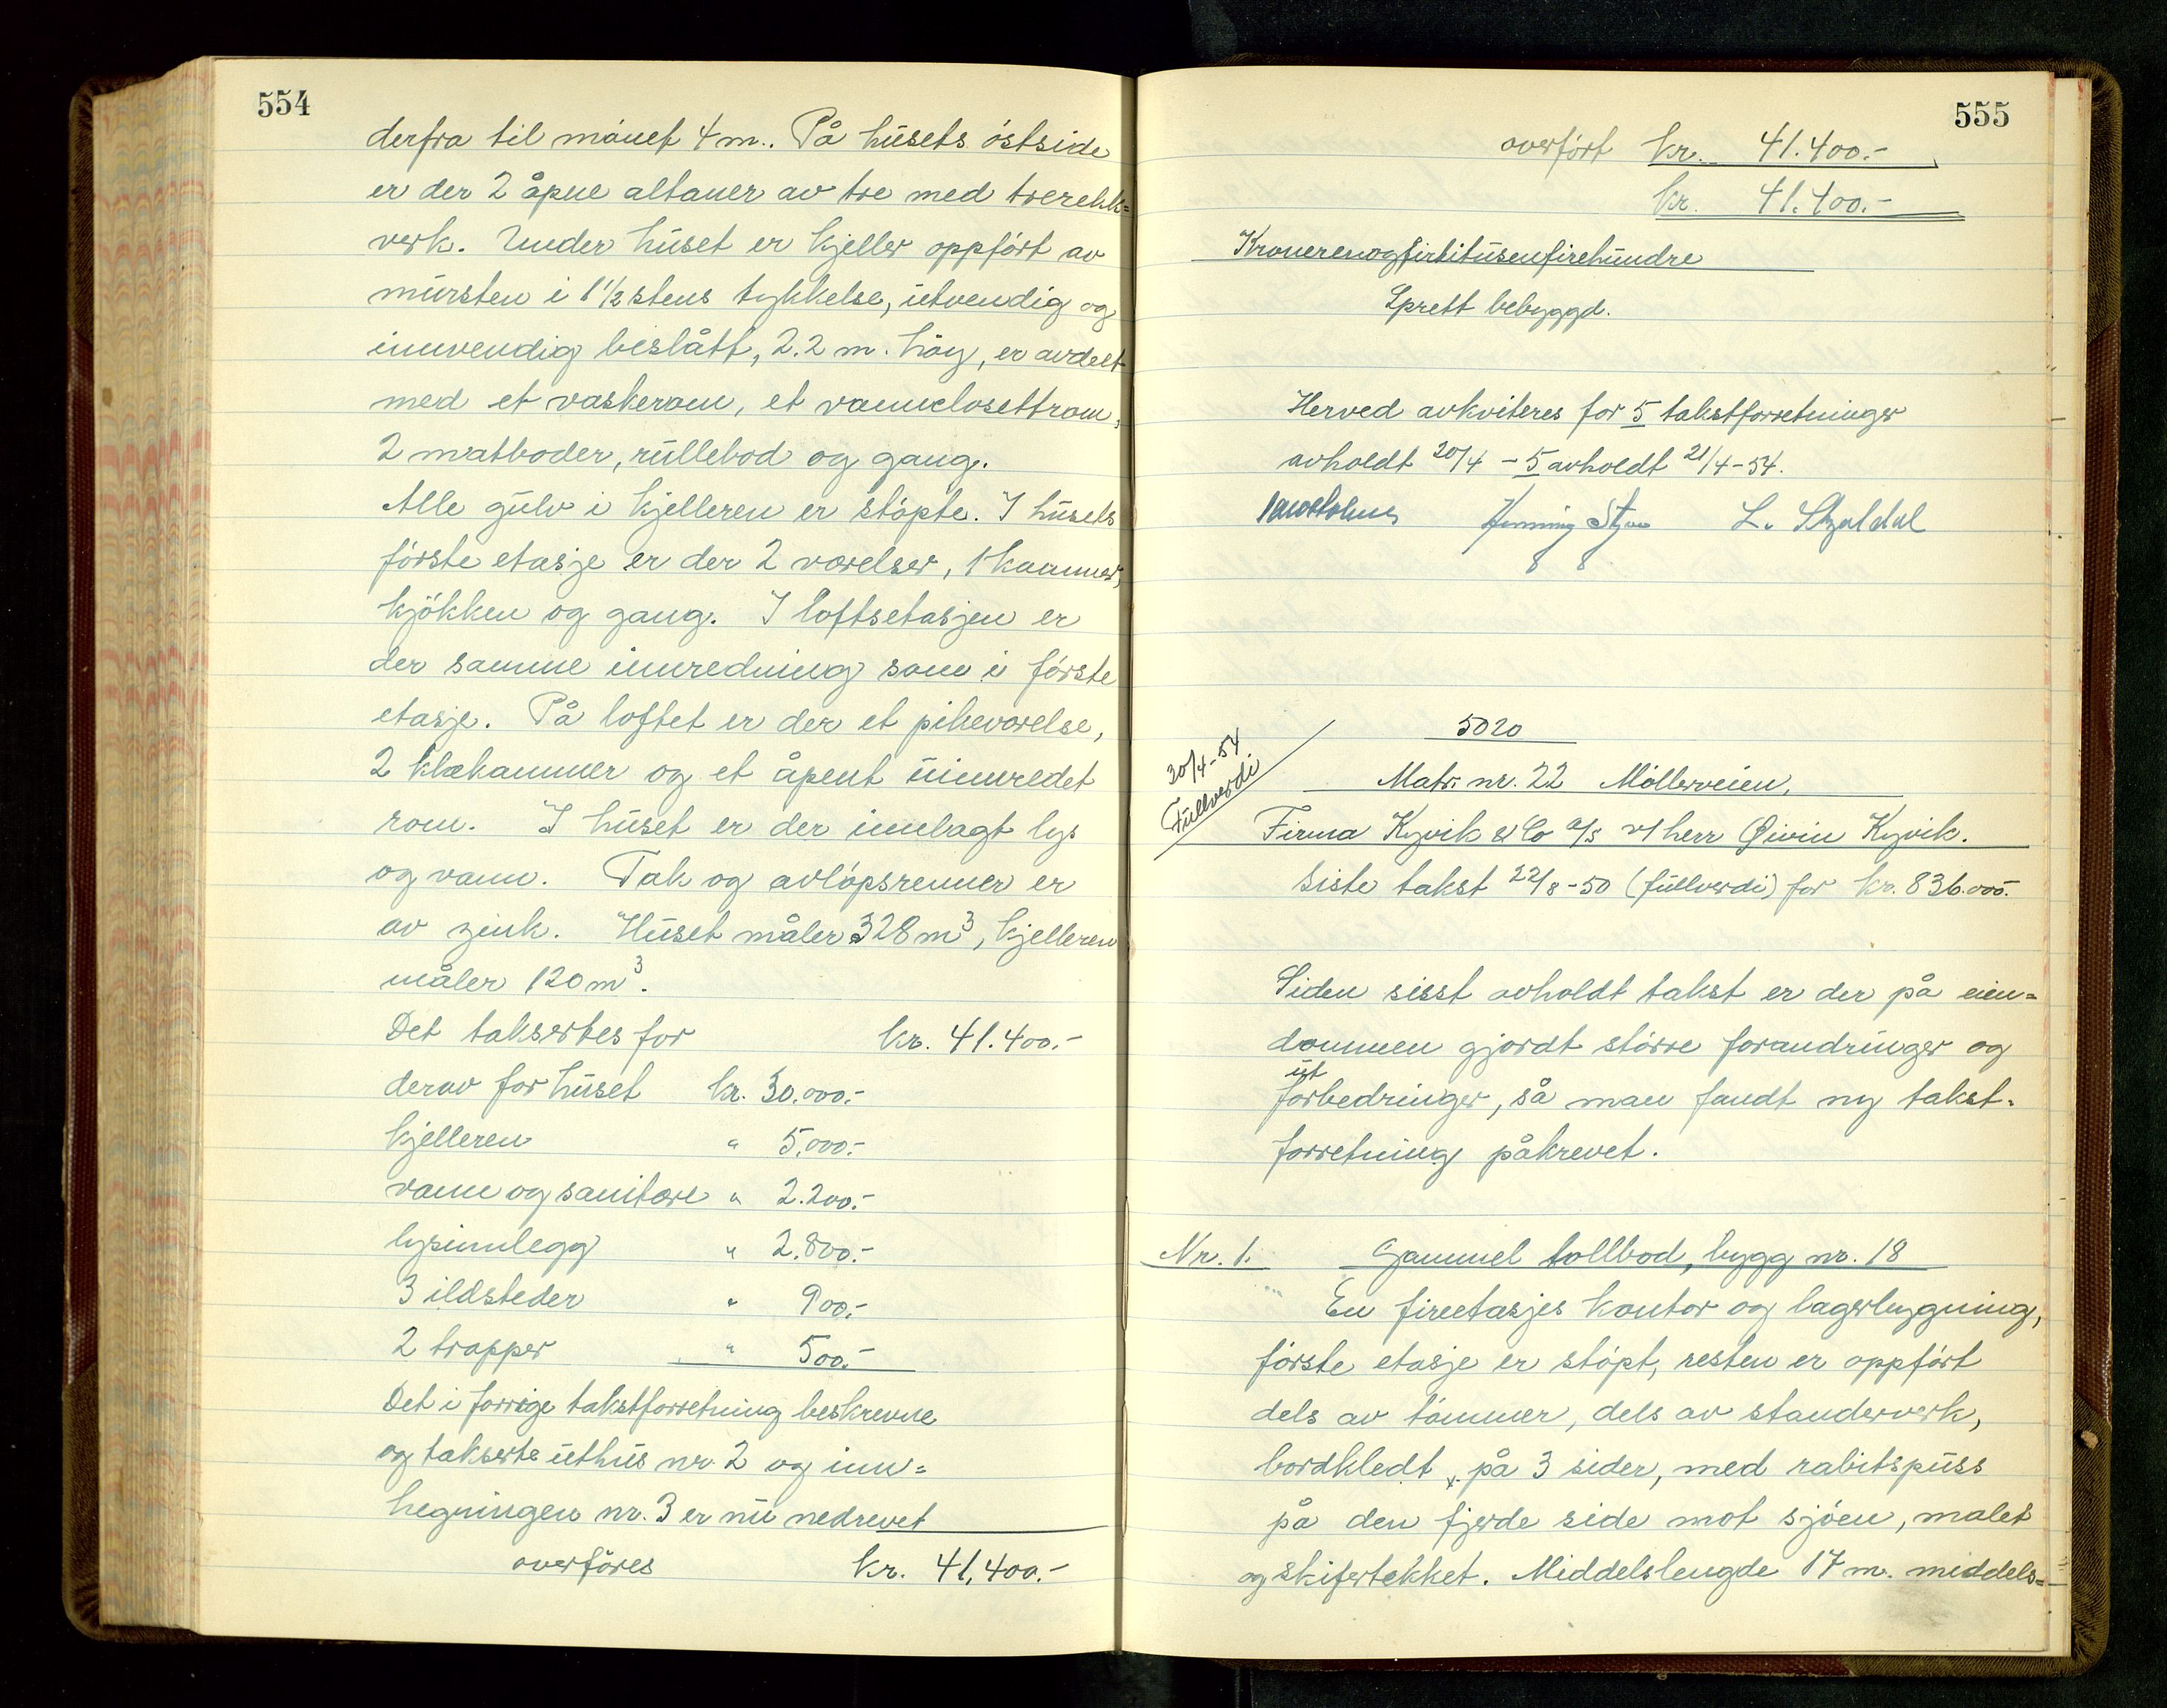 554
derfra til mønet 4 m.. På husets østside
er der 2 åpne altaner av tre med trerekk=
verk. Under huset er kjeller oppført av
mursten i 1 1/2 stens tykkelse, utvendig og
innvendig beslått, 2.2 m. høy, er avdelt
med et vaskerom, et vannclosettrom,
2 matboder, rullebod og gang.
Alle gulv i kjelleren er støpte. I husets
første etasje er der 2 værelser, 1 kammer,
kjøkken og gang. I loftsetasjen er
der samme innredning som i første
etasje. På loftet er der et pikeværelse,
2 klækammer og et åpent uinnredet
rom. I huset er der innlagt lys
og vann. Tak og avløpsrenner er
av zink. Huset måler 328 m³, kjelleren
måler 120 m³.
Det taksertes for kr. 41.400.-
derav for huset kr. 30.000.-
kjelleren " 5.000.-
vann og sanitære " 2.200.-
lysinnlegg " 2.800.-
3 ildsteder " 900.-
2 trapper " 500.-
Det i forrige takstforretning beskrevne
og takserte uthus nr. 2 og inn=
hegningen nr. 3 er nu nedrevet
overføres kr. 41.400.-
555
overført kr. 41.400.-
kr. 41.400.-
Kronerenogførtitusenfirehundre
Spredt bebyggd.
Herved avkviteres for 5 takstforretninger
avholdt 20/4 - 5 avholdt 21/4-54.
Henning L.
5020
30/4-54
Fullverdi
Matr. nr. 22 Møllerveien.
Firma Kyvik & Co a/s v/ herr Øivin Kyvik.
Siste takst 22/8-50 (fullverdi) for kr. 836.000.-
Siden sisst avholdt takst er der på eien=
dommen gjordt større forandringer og
ut
forbedringer, så man fandt ny takst=
forretning påkrevet.
Nr. 1. Gammel tollbod, bygg nr. 18
En fireetasjes kontor og lagerbygning,
første etasje er støpt, resten er oppført
dels av tømmer, dels av standerverk,
bordkledt på 3 sider, med rabitspuss
på den fjerde side mot sjøen, malet
og skifertekket. Middelslengde 17 m. middels=